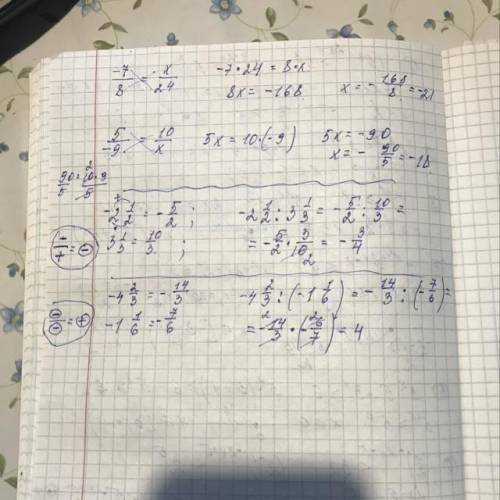 -7/8 = x/24    -7·24 = 8·x    x = - 168/8 = -21
8x = -168
5/-9 = 10/x    5x = 10·(-9)    5x = -90
x = - 90/5 = -18
90/5 = 10·9/5  2
-2 1/2 = - 5/2 ;    -2 1/2 : 3 1/3 = - 5/2 : 10/3 =
-/+ = -    3 1/3 = 10/3 ;    = - 5/2 · 3/10 2 = - 3/4
-4 2/3 = - 14/3    -4 2/3 : (-1 1/6) = - 14/3 : (- 7/6) =
-/- = +    -1 1/6 = - 7/6    = - 14/3 · (- 6/7) = 4